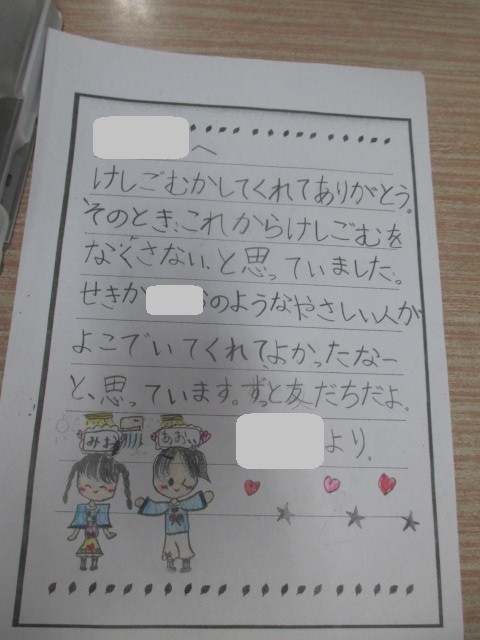 へ
けしごむかしてくれてありがとう。
そのとき、これからけしごむを
なくさない、と思っていました。
せきが
のようなやさしい人が
よこでいてくれてよかったなー
と、思っています。ずっと友だちだよ。
より、
みお
あおい